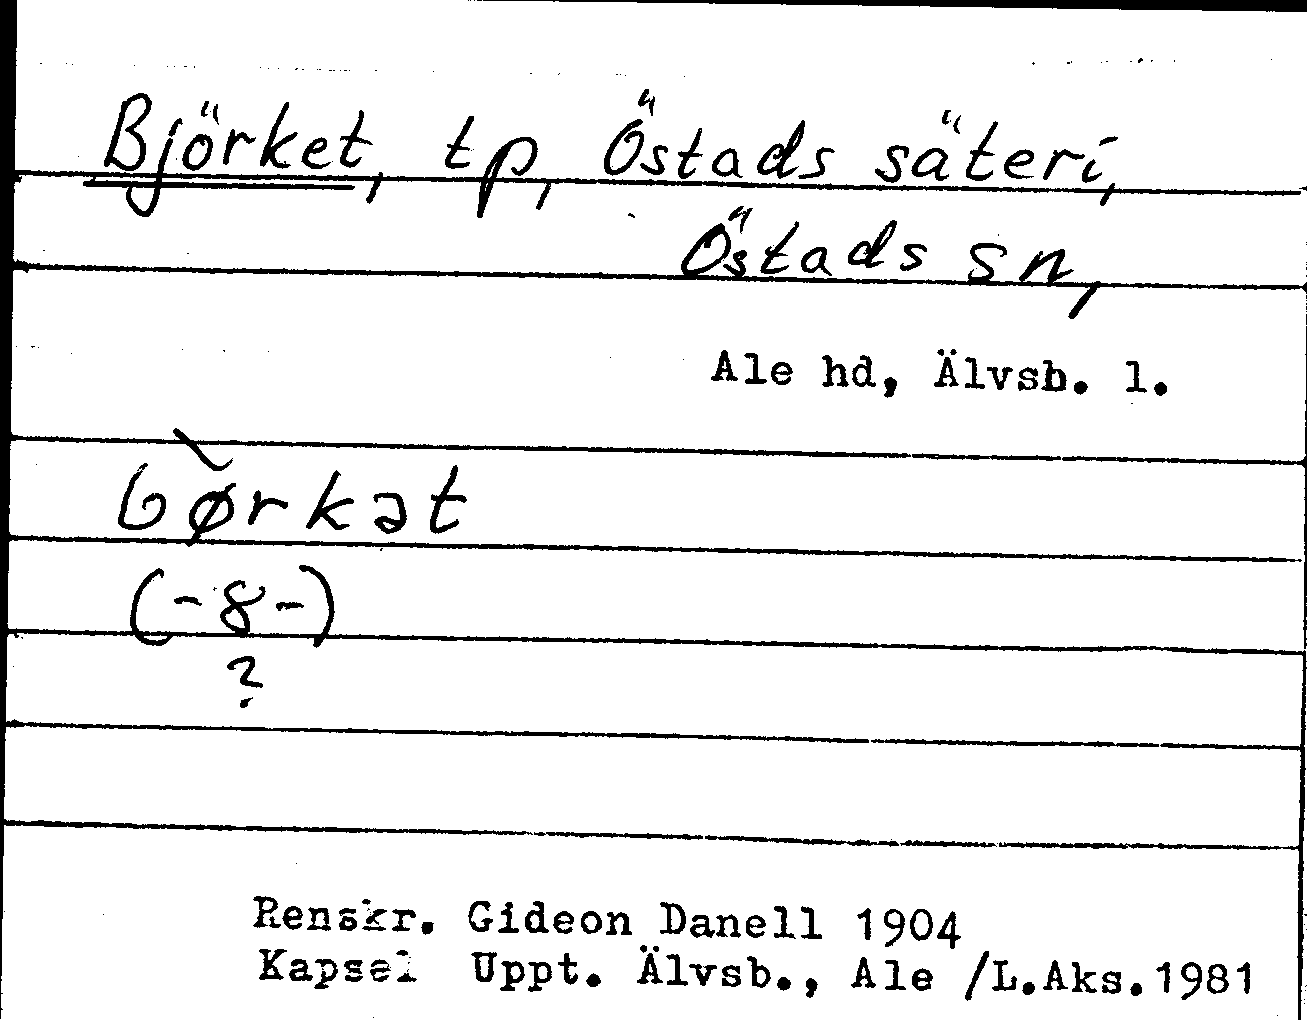 Björket, tp, Östads säteri,
Östads sn,
Ale hd, Älvsb. l.
bø̀rkət
(-8-)
?
Renskr. Gideon Danell 1904
Kapsel Uppt. Älvsb., Ale /L.Aks.1981